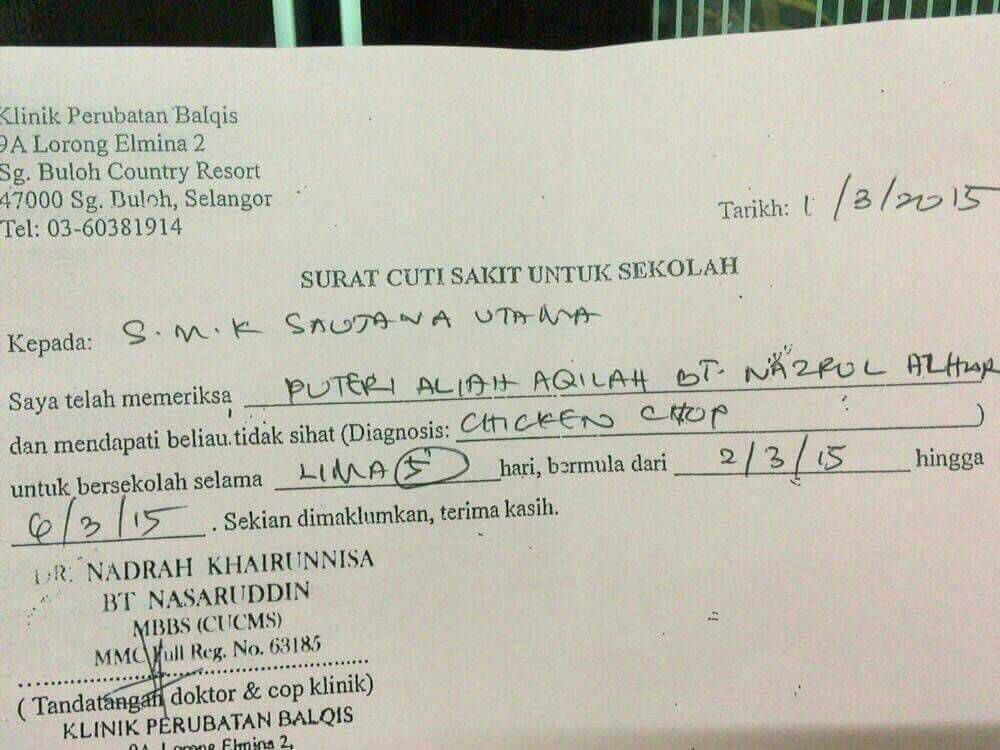 Klinik Perubatan Balqis
9A Lorong Elmina 2
Sg. Buloh Country Resort
47000 Sg. Buloh, Selangor
Tel: 03-60381914
Tarikh: 1/3/2015
SURAT CUTI SAKIT UNTUK SEKOLAH
Kepada: S.M.K SAUJANA UTAMA
Saya telah memeriksa PUTERI ALIAH AQILAH BT. NAZRUL
dan mendapati beliau tidak sihat (Diagnosis: CHICKEN CHOP)
untuk bersekolah selama LIMA (5) hari, bermula dari 2/3/15 hingga
6/3/15. Sekian dimaklumkan, terima kasih.
DR. NADRAH KHAIRUNNISA
BT NASARUDDIN
MBBS (CUCMS)
MMC Full Reg. No. 63185
( Tandatangan doktor & cop klinik)
KLINIK PERUBATAN BALQIS
9A, Lorong Elmina 2,